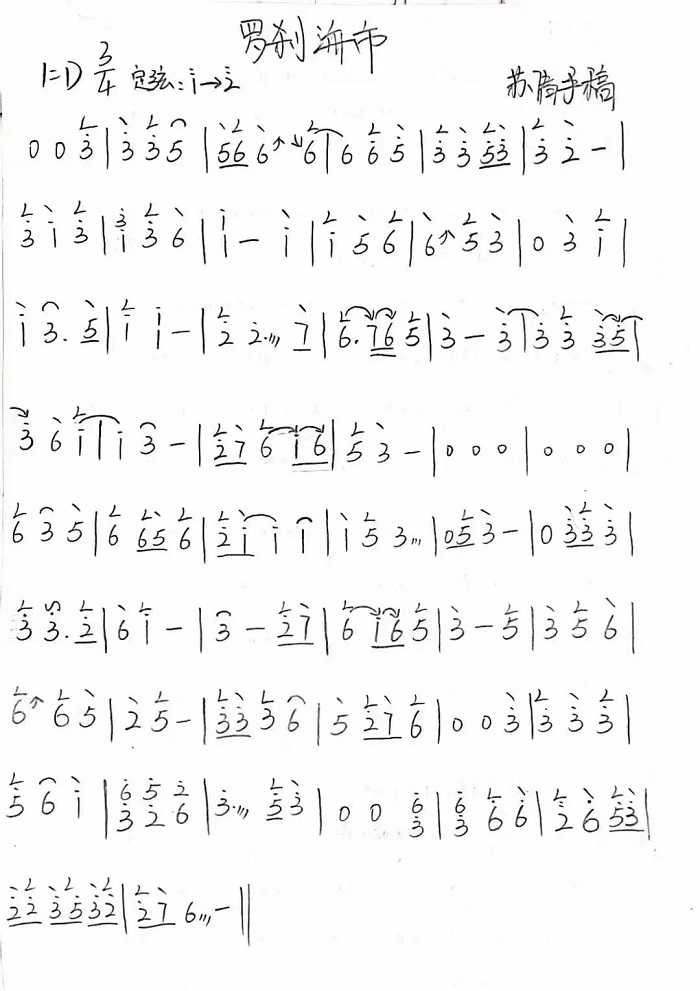 罗刹海市
1=D 3/4 定弦:i→2 苏陌手稿
0 0 3 | 3 3 5 | 56 6 6 | 6 6 5 | 3 3 53 | 3 2 - |
3 1 3 | 1 3 6 | 1 - 1 | 1 5 6 | 6 5 3 | 0 3 1 |
1 3. 5 | 1 1 - | 2 2. 7 | 6. 76 5 | 3 - 3 | 3 3 35 |
3 6 1 | 1 3 - | 27 6 16 | 5 3 - | 0 0 0 | 0 0 0 |
6 3 5 | 6 65 6 | 21 1 1 | 1 5 3 | 05 3 - | 0 33 3 |
3 3. 2 | 6 1 - | 3 - 27 | 6 16 5 | 3 - 5 | 3 5 6 |
6 6 5 | 2 5 - | 33 3 6 | 5 27 6 | 0 0 3 | 3 3 3 |
5 6 1 | 6/3 5/2 2/6 | 3. 53 | 0 0 6/3 | 6/3 6 6 | 2 6 53 |
22 35 32 | 27 6 - ||